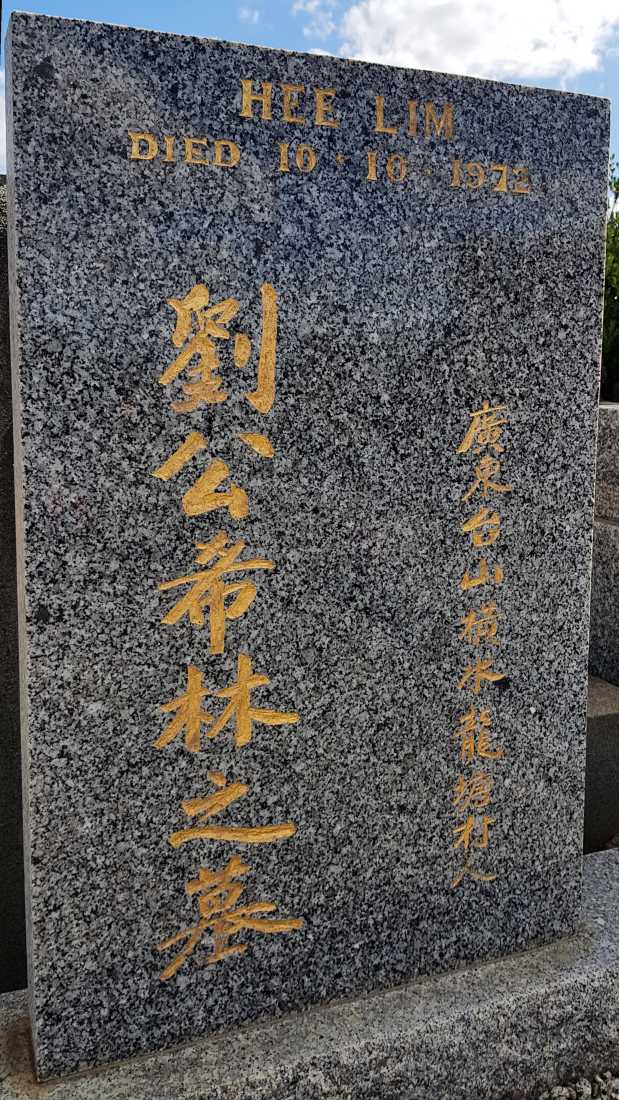 HEE LIM
DIED 10·10·1972
廣東台山橫水龍塘村人
劉公希林之墓